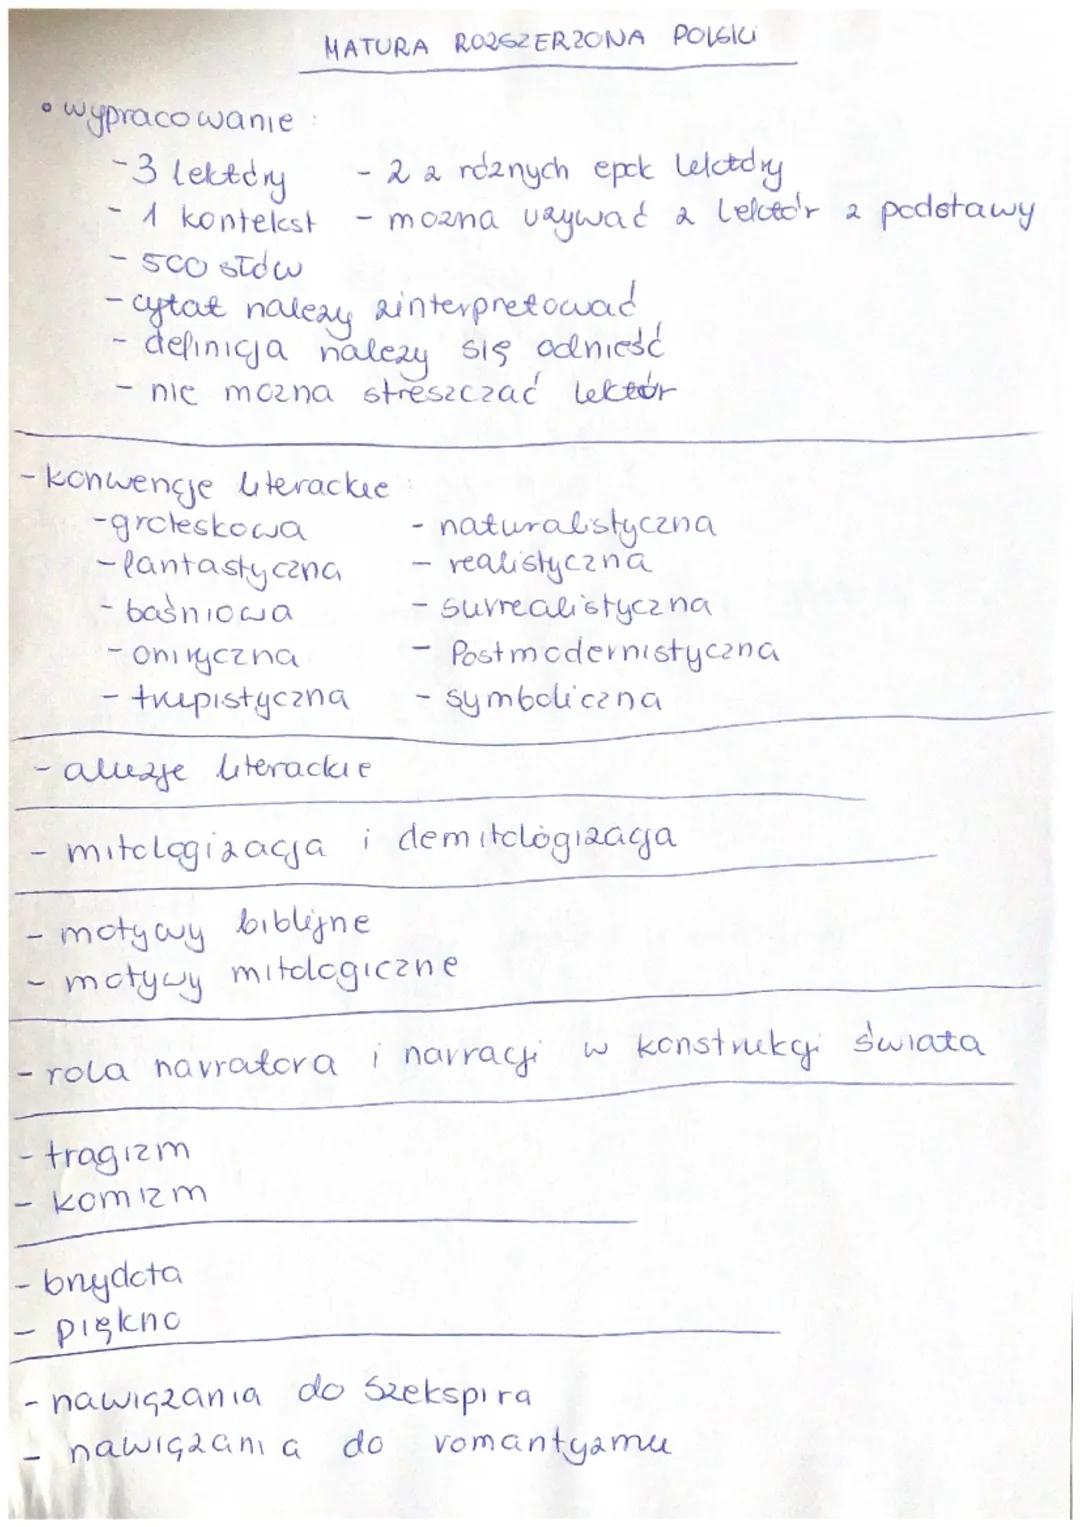 MATURA ROZSZERZONA POLSKI
• wypracowanie:
- 3 lektury - 2 z różnych epok lektury
- 1 kontekst - można używać z lektur z podstawy
- 500 słów
- cytat należy zinterpretować
- definicja należy się odnieść
- nie można streszczać lektur
- konwencje literackie:
- groteskowa - naturalistyczna
- fantastyczna - realistyczna
- baśniowa - surrealistyczna
- oniryczna - Postmodernistyczna
- turpistyczna - symboliczna
- aluzje literackie
- mitologizacja i demitologizacja
- motywy biblijne
- motywy mitologiczne
- rola narratora i narracji w konstrukcji świata
- tragizm
- komizm
- brzydota
- piękno
- nawiązania do Szekspira
- nawiązania do romantyzmu